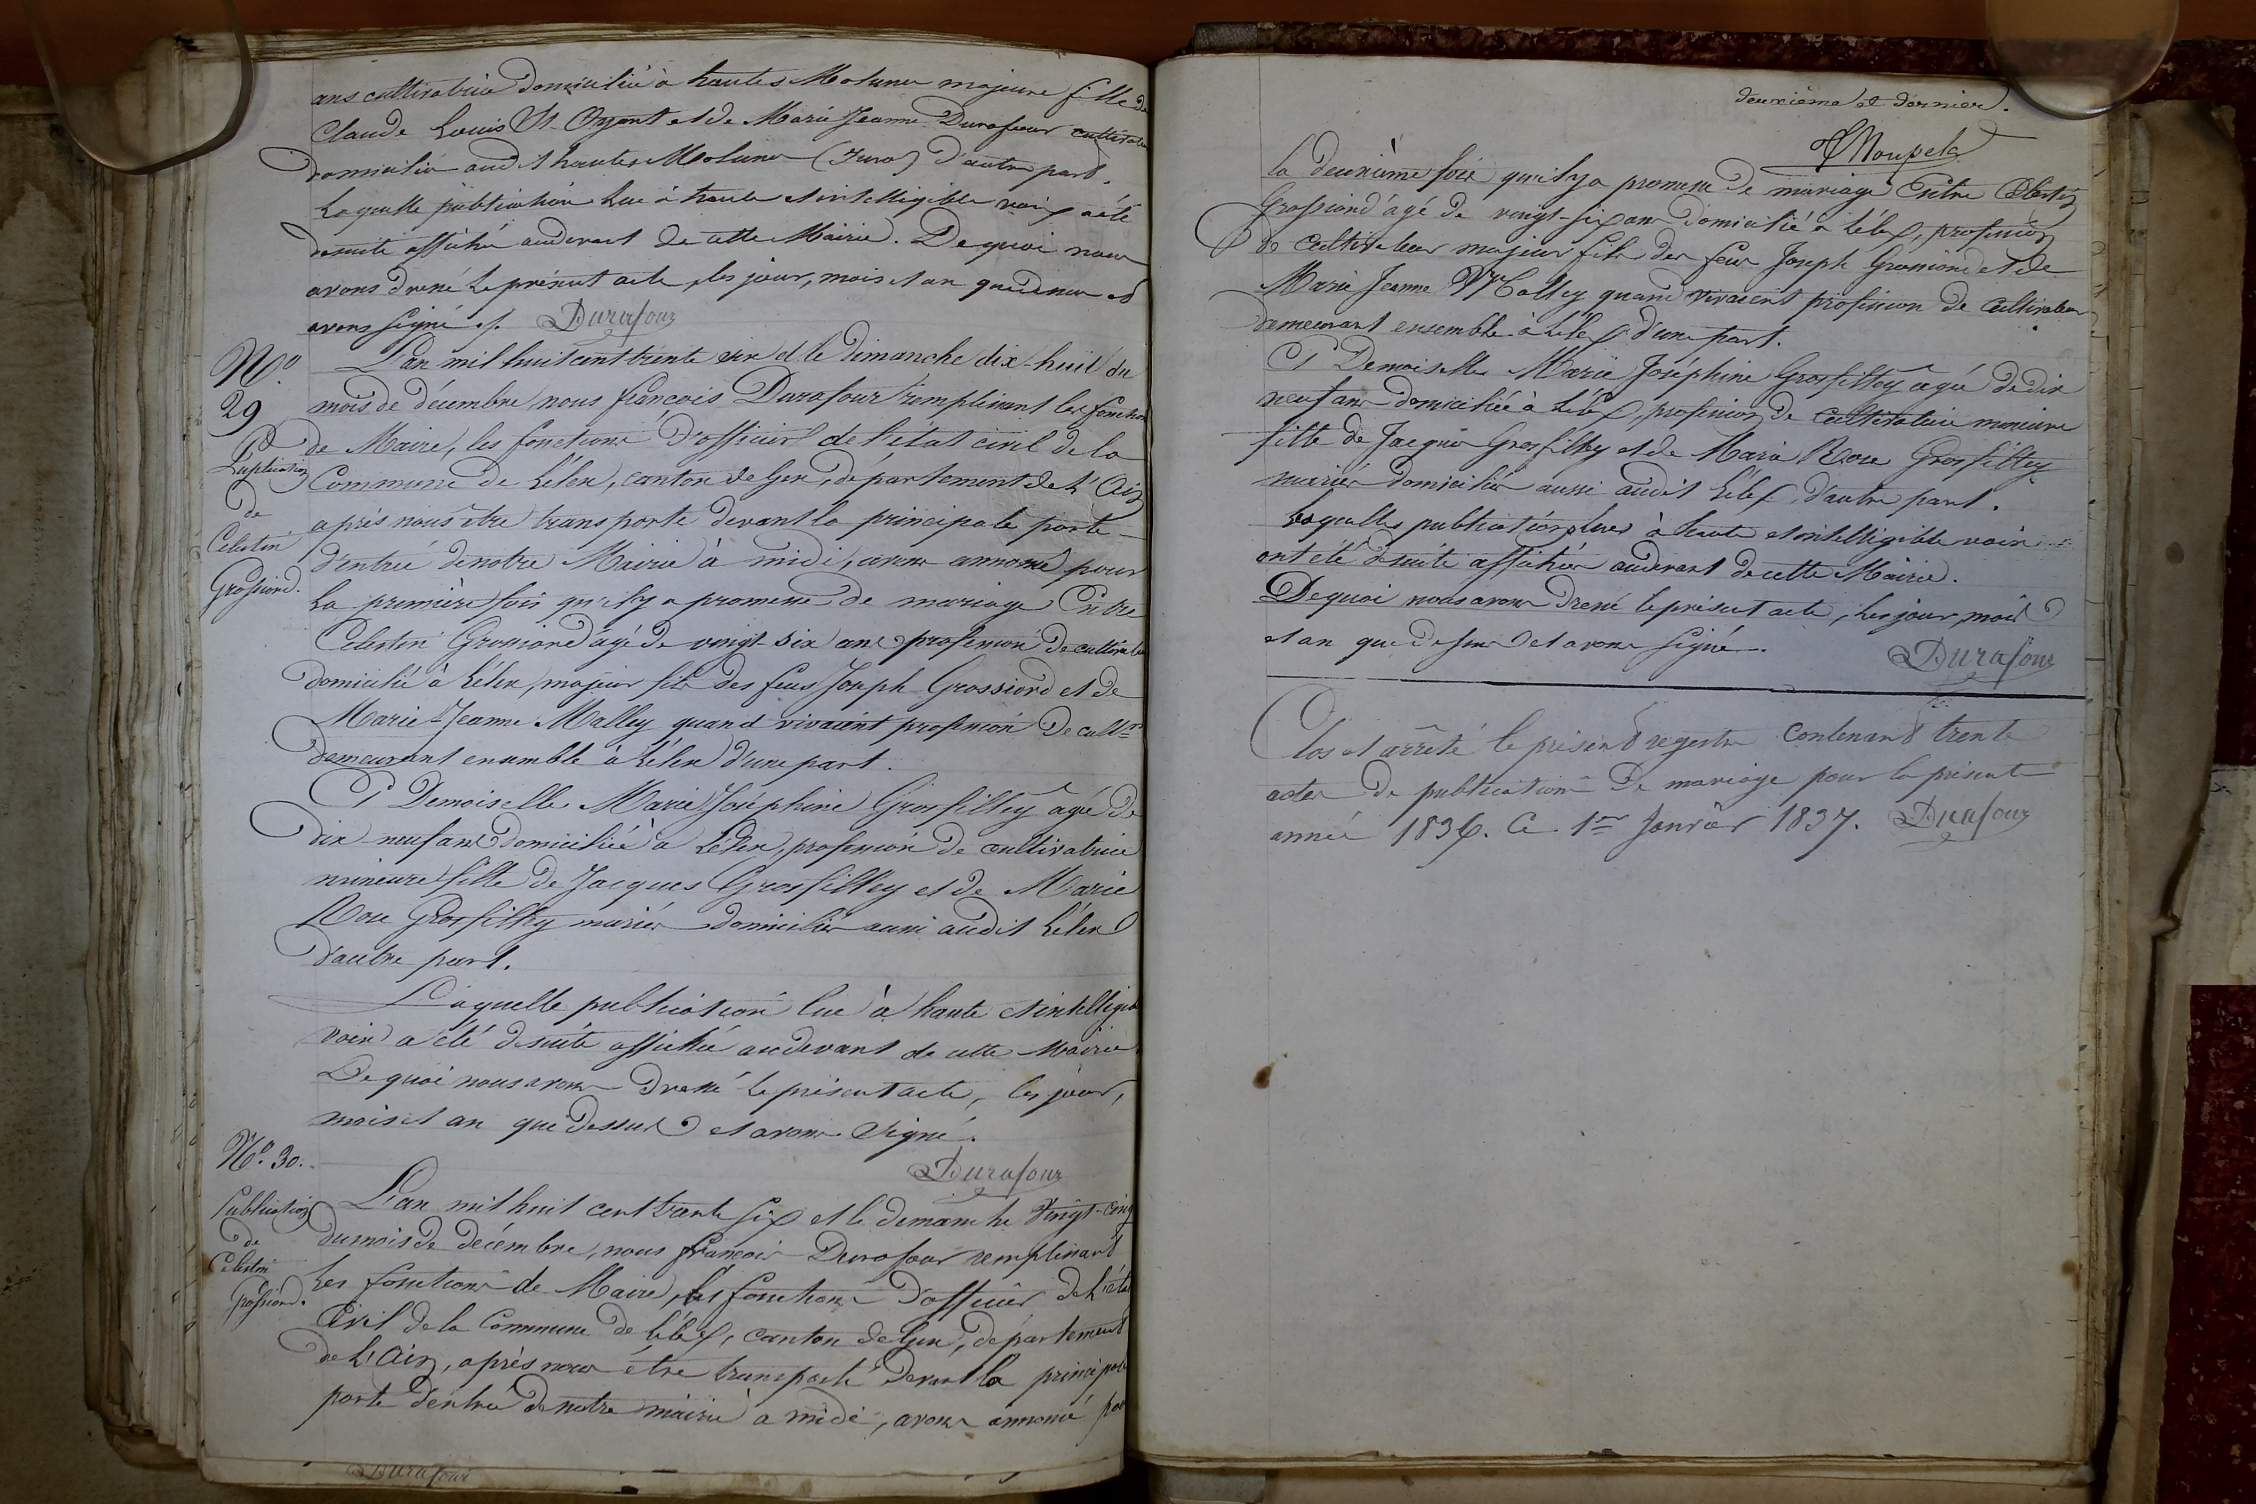 ans cultivatrice domiciliée à hautes Molunes majeure fille de
Claude Louis St. Oyant et de Marie Jeanne Durafour cultivateurs
domiciliés audit hautes Molunes (Jura) d'autre part.
Laquelle publication lue à haute et intelligible voix a été
desuite affichée audevant de cette Mairie. De quoi nous
avons dressé le présent acte, les jour, mois et an que dessus et
avons signé. Durafour
No.
29
Puplication
de
Celestin
Grossiord.
L'an mil huit cent trente six et le dimanche dix-huit du
mois de décembre, nous françois Durafour remplissant les fonctions
de Maire, les fonctions d'officier de l'état civil de la
Commune de Lélex, canton de Gex, département de l'Ain
après nous être transporté devant la principale porte
d'entrée de notre Mairie à midi, avons annoncé pour
la première fois qu'il y a promesse de mariage Entre
Celestin Grossiord agé de vingt-six ans profession de cultivateur
domicilié à Lélex, majeur fils des feus Joseph Grossiord et de
Marie-Jeanne Malley quand vivaient profession de cultrs
demeurant ensemble à Lélex d'une part.
Et Demoiselle Marie Joséphine Grosfilley agée de
dix neuf ans domiciliée à Lélex, profession de cultivatrice
mineure fille de Jacques Grosfilley et de Marie
Rose Grosfilley mariés domiciliés aussi audit Lélex
d'autre part.
Laquelle publication lue à haute et intelligible
voix a été desuite affichée audevant de cette Mairie
De quoi nous avons dressé le présent acte, les jour,
mois et an que dessus et avons signé.
Durafour
No. 30.
Publication
de
Celestin
Grossiord.
L'an mil huit cent trente six et le demanche vingt-cinq
du mois de décembre, nous françois Durafour remplissant
les fonctions de Maire, les fonctions d'officier de l'état
Civil de la Commune de Lélex, canton de Gex, département
de l'Ain, après nous être transporté devant la principale
porte d'entrée de notre mairie à midi, avons annoncé pour
Durafour
deuxième et dernier.
la deuxième fois qu'il y a promesse de mariage Entre Célestin
Grossiord agé de vingt-six ans domicilié à Lélex, profession
de cultivateur majeur fils des feus Joseph Grossiord et de
Marie Jeanne Malley quand vivaient profession de cultivateur
demeurant ensemble à Lélex d'une part.
Et Demoiselle Marie Joséphine Grosfilley agée de dix
neuf ans domiciliée à Lélex, profession de cultivatrice mineure
fille de Jacques Grosfilley et de Marie Rose Grosfilley
mariés domiciliés aussi audit Lélex, d'autre part.
Lesquelles publications lues à haute et intelligible voix
ont été desuite affichées audevant de cette Mairie.
De quoi nous avons dressé le présent acte, les jour, mois
et an que dessus et avons signé.
Durafour
Clos et arrêté le présent registre contenant trente
actes de publication de mariage pour la présente
année 1836. Ce 1er Janvier 1837. Durafour